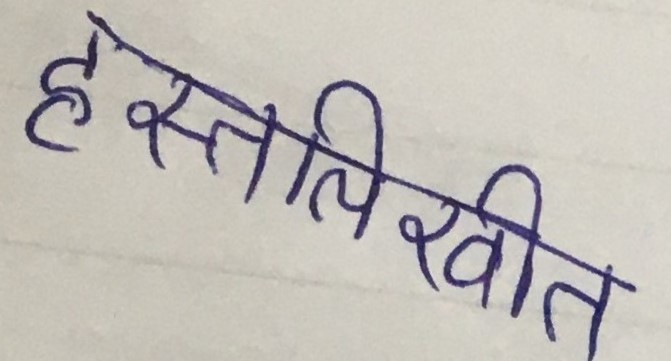 हस्तलिखीत